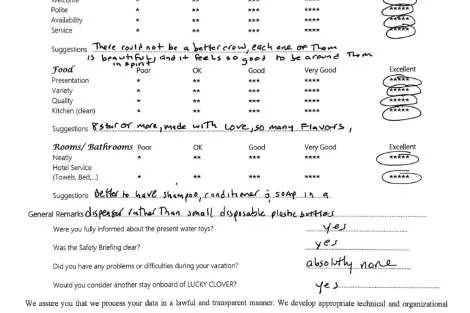 Welcome * ** *** **** *****
Polite * ** *** **** *****
Availability * ** *** **** *****
Service * ** *** **** *****
Suggestions There could not be a better crew, each one of Them
is beautiful, and it feels so good to be around Them
in spirit
Food Poor OK Good Very Good Excellent
Presentation * ** *** **** *****
Variety * ** *** **** *****
Quality * ** *** **** *****
Kitchen (clean) * ** *** **** *****
Suggestions 8 star or more, made with Love, so many Flavors,
Rooms/ Bathrooms Poor OK Good Very Good Excellent
Neatly * ** *** **** *****
Hotel Service
(Towels, Bed,...) * ** *** **** *****
Suggestions Better to have shampoo, conditioner & soap in a
General Remarks dispenser rather Than small disposable plastic bottles
Were you fully informed about the present water toys? yes
Was the Safety Briefing clear? yes
Did you have any problems or difficulties during your vacation? absolutly none
Would you consider another stay onboard of LUCKY CLOVER? yes
We assure you that we process your data in a lawful and transparent manner. We develop appropriate technical and organizational